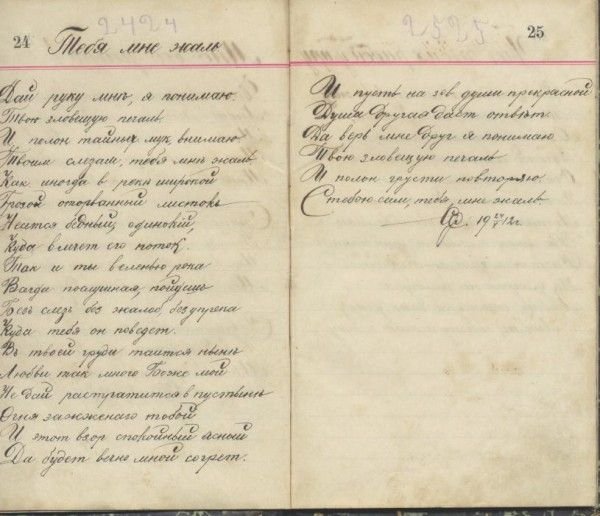 24
2424
Тебя мне жаль
Дай руку мнѣ, я понимаю
Твою зловещую печаль
И полон тайных мук, внимаю
Твоим слезам, тебя мнѣ жаль
Как иногда в рекѣ широкой
Грозой оторванный листокъ
Несится бѣдный, одинокій,
Куда влечет его поток.
Так и ты веленью рока
Всегда послушная, пойдешь
Безъ слезъ без жалоб, без упрека
Куда тебя он поведет.
Въ твоей груди таится нынѣ
Любви так много Боже мой
Не дай растратится в пустынѣ
Огня зажженаго тобой
И этот взор спокойный ясной
Да будет вечно мной согрет.
2525
25
И пусть на зов души прекрасной
Душа другая даст отвѣт.
Да верь мне друг я понимаю
Твою зловещую печаль
И полон грусти повторяю.
С тобою сам, тебя, мне жаль
19 12 г.